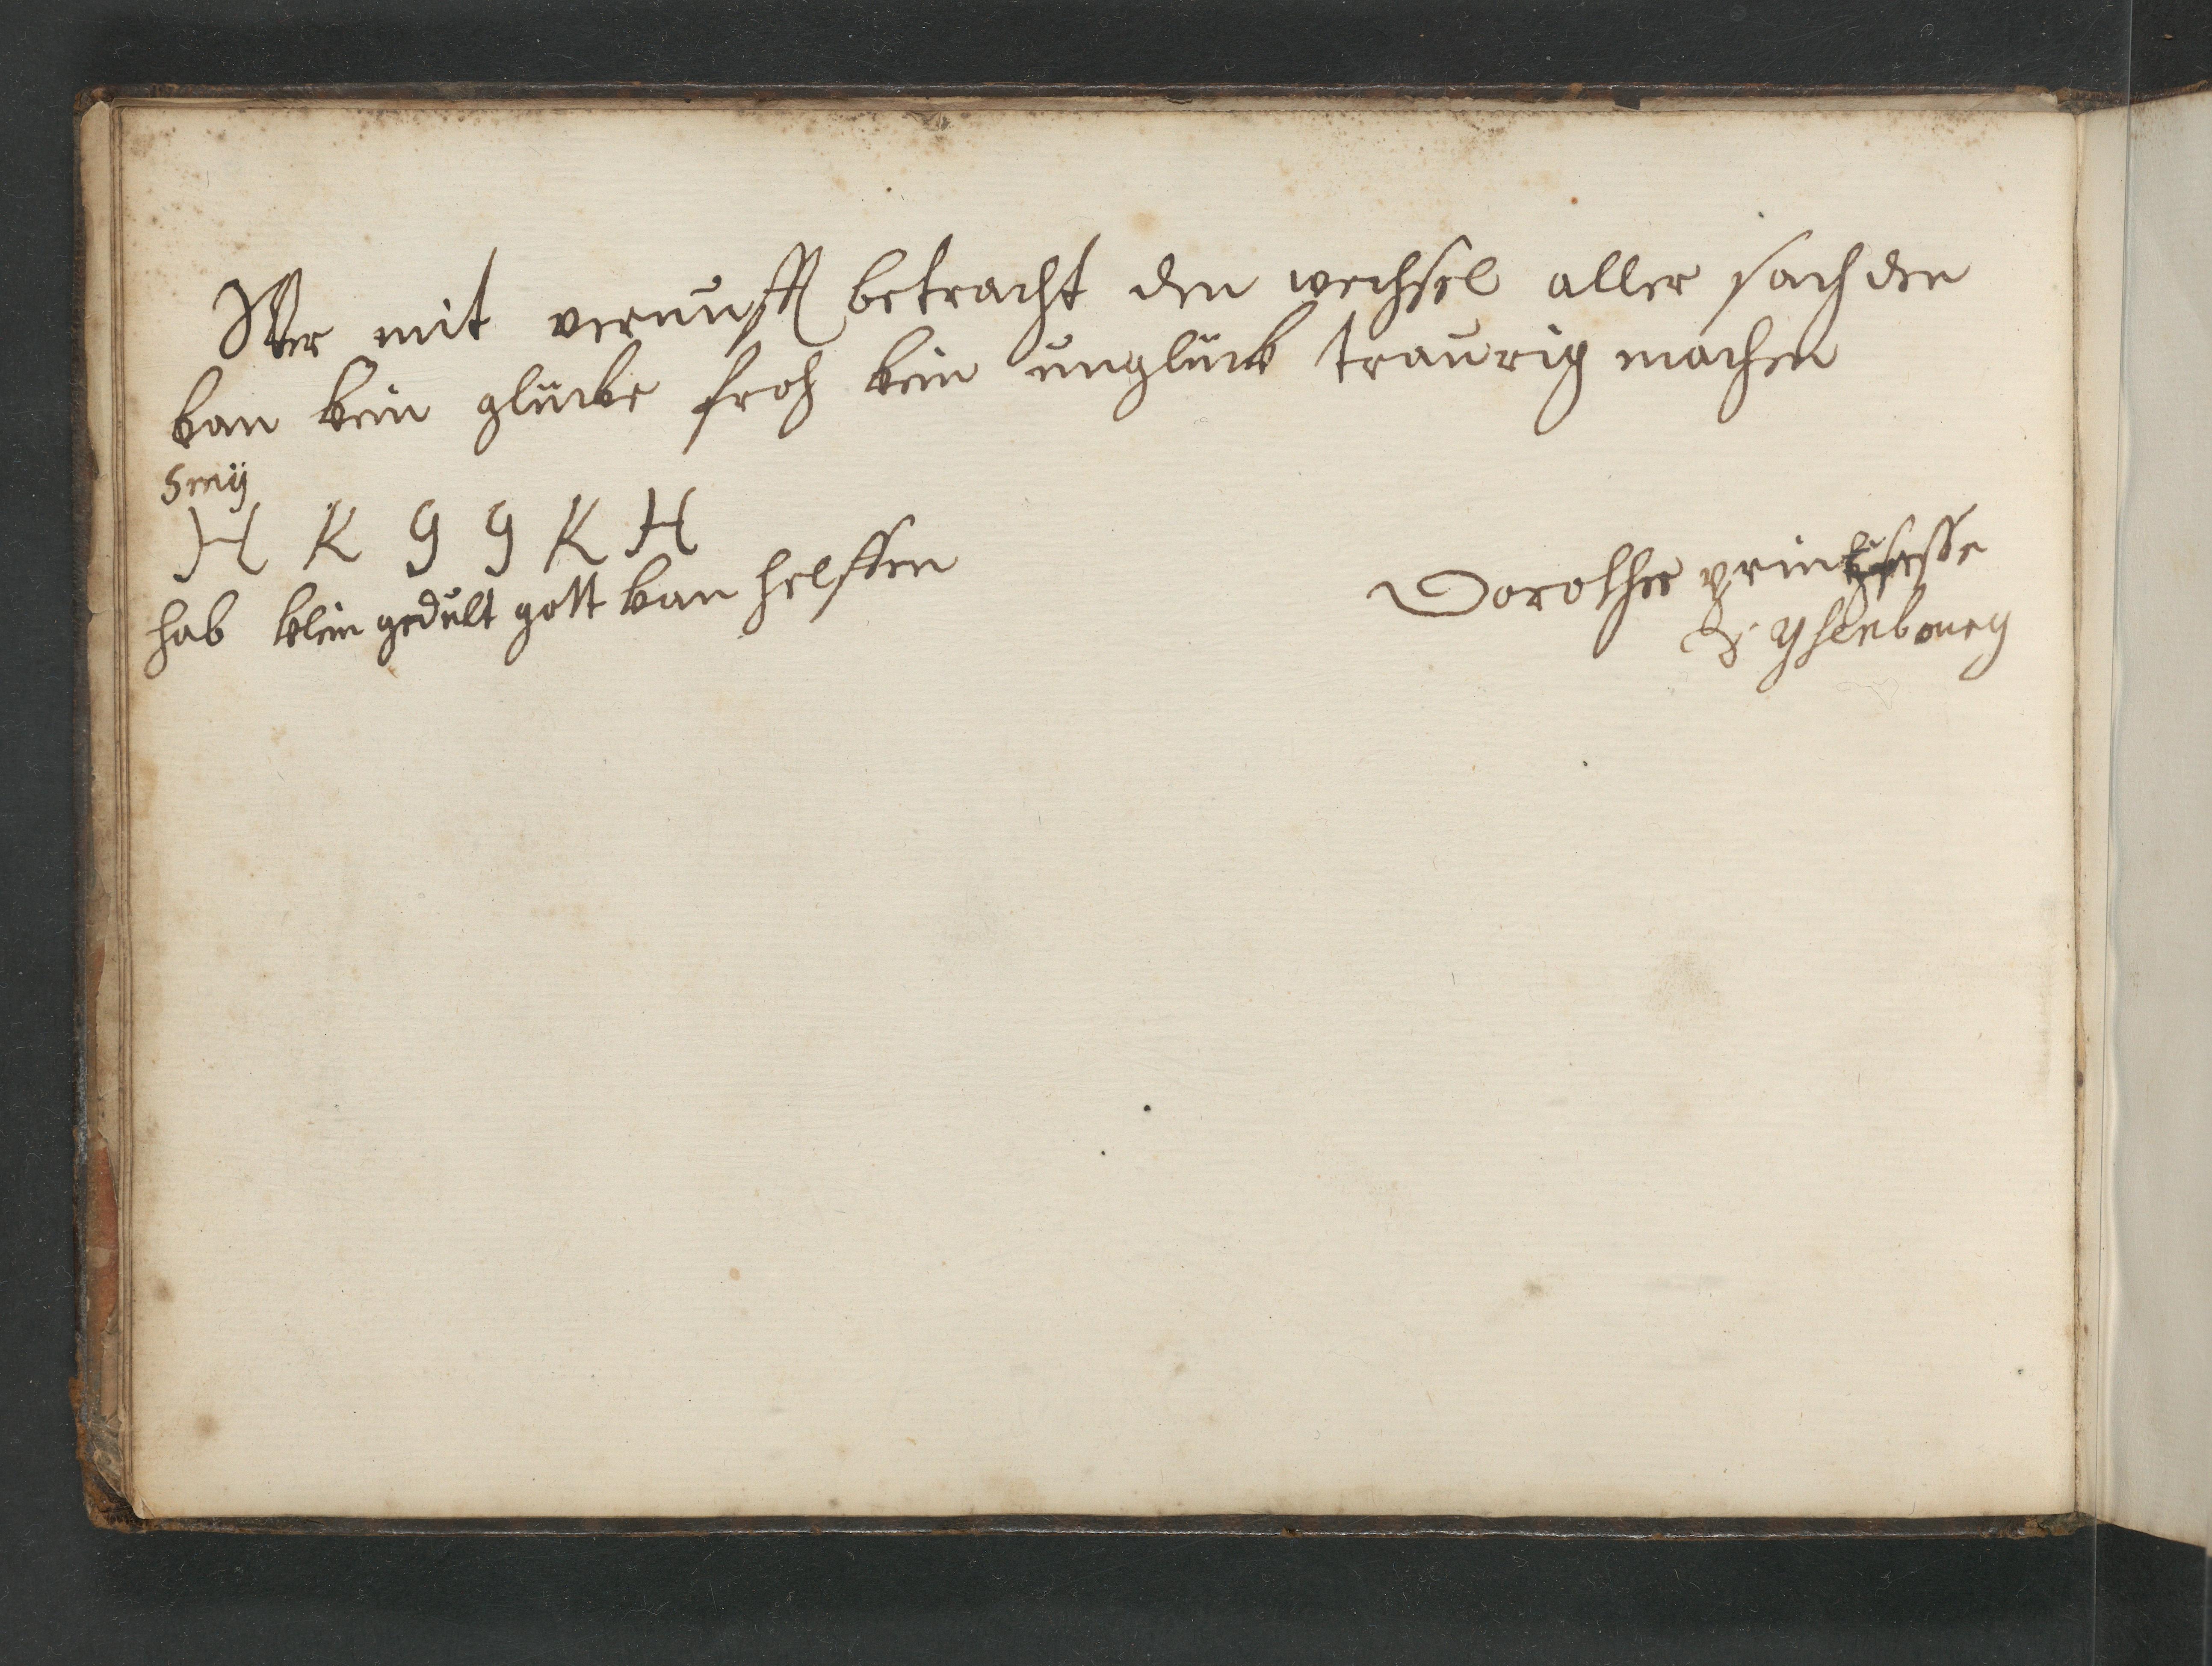 Wer mit vernunfft betracht den wechsel aller sachden
kan kein glücke froh kein unglück traurig machen
H K G G K H
hab klein gedult gott kan helffen
Dorothee printzesse
d. Ysenbourg